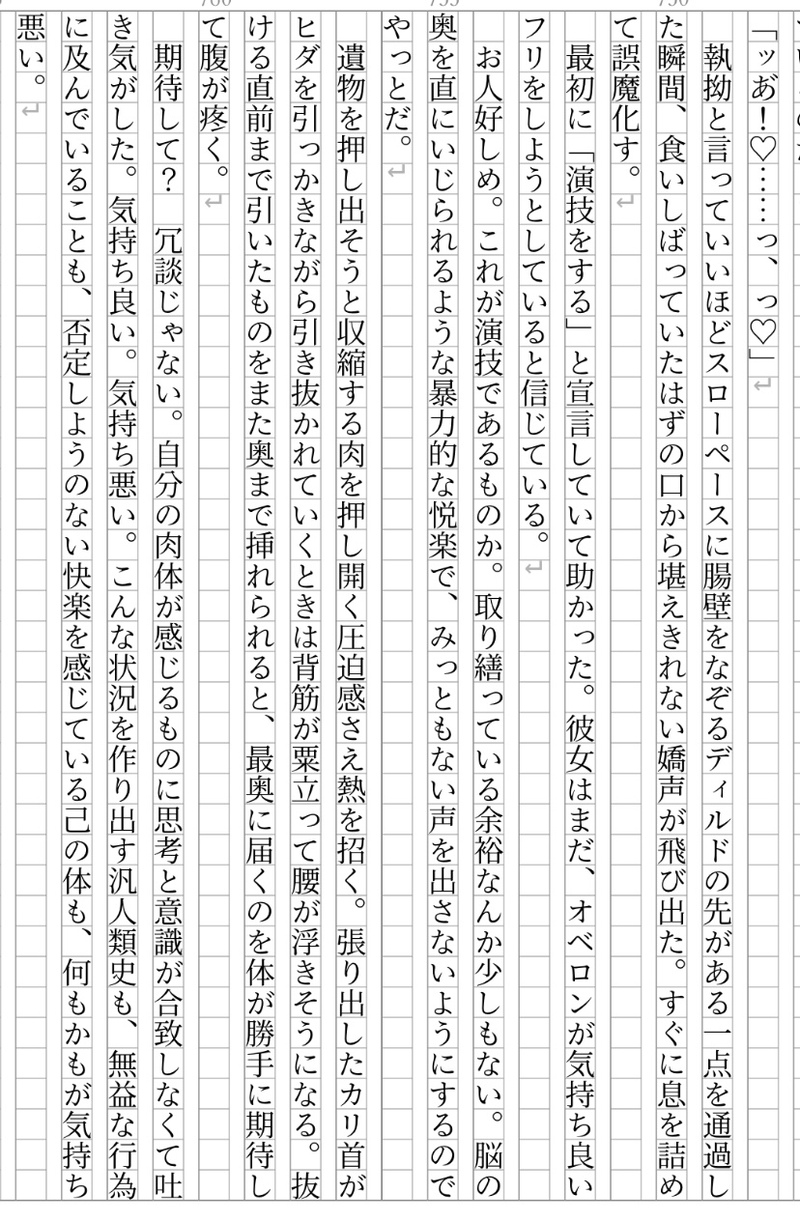 「ッあ゛！♡……っ、っ♡」
　執拗と言っていいほどスローペースに腸壁をなぞるディルドの先がある一点を通過し
た瞬間、食いしばっていたはずの口から堪えきれない嬌声が飛び出た。すぐに息を詰め
て誤魔化す。
　最初に「演技をする」と宣言していて助かった。彼女はまだ、オベロンが気持ち良い
フリをしようとしていると信じている。
　お人好しめ。これが演技であるものか。取り繕っている余裕なんか少しもない。脳の
奥を直にいじられるような暴力的な悦楽で、みっともない声を出さないようにするので
やっとだ。
　遺物を押し出そうと収縮する肉を押し開く圧迫感さえ熱を招く。張り出したカリ首が
ヒダを引っかきながら引き抜かれていくときは背筋が粟立って腰が浮きそうになる。抜
ける直前まで引いたものをまた奥まで挿れられると、最奥に届くのを体が勝手に期待し
て腹が疼く。
　期待して？　冗談じゃない。自分の肉体が感じるものに思考と意識が合致しなくて吐
き気がした。気持ち良い。気持ち悪い。こんな状況を作り出す汎人類史も、無益な行為
に及んでいることも、否定しようのない快楽を感じている己の体も、何もかもが気持ち
悪い。